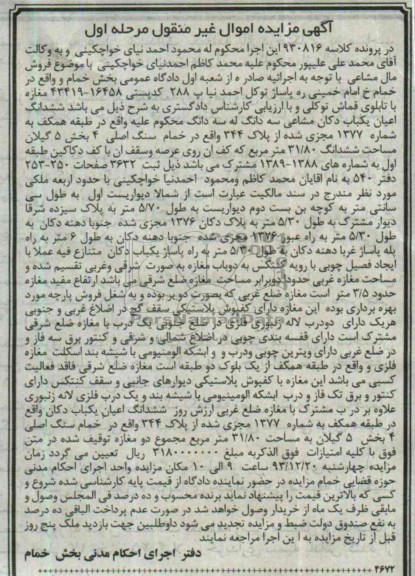 آگهی مزایده اموال غیر منقول مرحله اول
در پرونده کلاسه ۹۳۰۸۱۶ این اجرا محکوم له محمود احمد نیای خواچکینی و به وکالت
آقای محمد علی علیپور محکوم علیه محمد کاظم احمدنیای خواچکینی با موضوع فروش
مال مشاعی با توجه به اجرائیه صادره از شعبه اول دادگاه عمومی بخش خمام و واقع در
خمام خ امام خمینی ره پاساژ توکل احمد نیا پ ۲۸۸ کدپستی ۱۶۴۵۸-۴۳۴۱۹ مغازه
با تابلوی قماش توکلی و با ارزیابی کارشناس دادگستری به شرح ذیل می باشد ششدانگ
اعیان یکباب دکان مشاعی سه دانگ له سه دانگ محکوم علیه واقع در طبقه همکف به
شماره ۱۳۷۷ مجزی شده از پلاک ۳۴۴ واقع در خمام سنگ اصلی ۴ بخش ۵ گیلان
مساحت ششدانگ ۳۱/۸۰ متر مربع که کف آن روی عرصه وسقف آن با کف دکاکین طبقه
اول به شماره های ۱۳۸۸-۱۳۸۹ مشترک می باشد ذیل ثبت ۳۶۳۲ صفحات ۲۵۰-۲۵۳
دفتر ۵۴۰ به نام آقایان محمد کاظم ومحمود احمدنیا خواچکینی با حدود اربعه ملکی
مورد نظر مندرج در سند مالکیت عبارت است از شمالا دیواریست اول به طول سی
سانتی متر به کوچه بن بست دوم دیواریست به طول ۵/۷۰ متر به پلاک سیزده شرقا
دیوار مشترک به طول ۵/۳۰ متر به پلاک دکان ۱۳۷۶ مجزی شده جنوبا دهنه دکان به
طول ۵/۳۰ متر به راه عبور ۱۳۷۶ مجزی شده جنوبا دهنه دکان به طول ۶ متر به راه
پله پاساژ غربا دهنه دکان به طول ۵/۳۰ متر به راه پاساژ یکباب دکان متنازع فیه عملا با
ایجاد فصیل چوبی با رویه کنتکس به دوباب مغازه به صورت شرقی وغربی تقسیم شده و
مساحت مغازه غربی حدود دوبرابر مساحت مغازه ضلع شرقی می باشد ارتفاع مفید مغازه
حدود ۳/۵ متر است مغازه ضلع غربی که بصورت کویر بوده و به شغل فروش پارچه مورد
بهره برداری بوده این مغازه دارای کفپوش پلاستیکی سقف گچ در اضلاع غربی و جنوبی
هریک دارای دودرب لاله زنبوری فلزی در ضلع جنوبی یک درب با مغازه ضلع شرقی
مشترک است دارای قفسه بندی چوبی در اضلاع شمالی و شرقی و کنتور برق سه فاز و
در ضلع غربی دارای ویترین چوبی ودرب و و ابشکه الومنیومی با شیشه بند اسکلت مغازه
فلزی و واقع در طبقه همکف از یک بلوک دو طبقه است مغازه ضلع شرقی فاقد فعالیت
کسبی می باشد این مغازه با کفپوش پلاستیکی دیوارهای جانبی و سقف کنتکس دارای
کنتور و برق تک فاز و درب ابشکه الومینیومی با شیشه بند و یک درب فلزی لانه زنبوری
علاوه بر در ب مشترک با مغازه ضلع غربی ارزش روز ششدانگ اعیان یکباب دکان واقع
در طبقه همکف به شماره ۱۳۷۷ مجزی شده از پلاک ۳۴۴ واقع در خمام سنگ اصلی
۴ بخش ۵ گیلان به مساحت ۳۱/۸۰ متر مربع مجموع دو مغازه توقیف شده در متن
فوق با کلیه امتیازات فوق الذکربه مبلغ ۳۱۸۰۰۰۰۰۰۰ ریال تعیین می گردد زمان
مزایده چهارشنبه ۹۳/۱۲/۲۰ ساعت ۹ الی ۱۰ مکان مزایده واحد اجرای احکام مدنی
حوزه قضایی خمام مزایده در حضور نماینده دادگاه از قیمت پایه کارشناسی شده شروع و
کسی که بالاترین قیمت را پیشنهاد نماید برنده محسوب و ده درصد فی المجلس وصول و
مابقی ظرف یک ماه از خریدار وصول خواهد شد در صورت عدم پرداخت الباقی ده درصد
به نفع صندوق دولت ضبط و مزایده تجدید می شود داوطلبین جهت بازدید ملک پنج روز
قبل از تاریخ مزایده به این اجرا مراجعه نمایند
دفتر اجرای احکام مدنی بخش خمام
۴۶۷۲